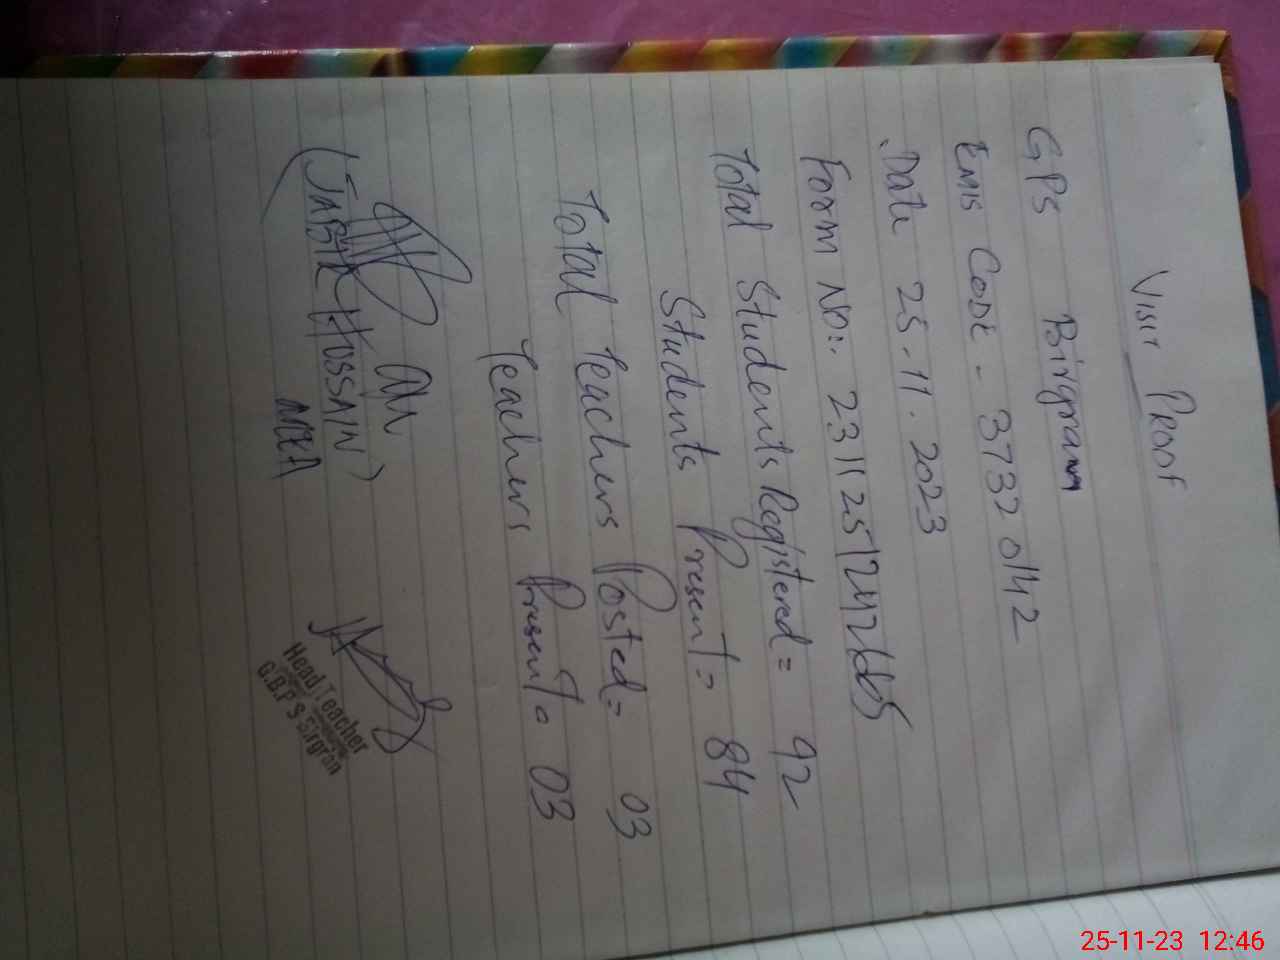 VISIT PROOF
GPS Birgram
EMIS Code - 37320142
Date 25.11.2023
Form No:.
Total Students Registered = 92
Students Present = 84
Total Teachers Posted = 03
Teachers Present = 03
(JABIR HUSSAIN)
MEA
Head Teacher
G.B.P S Birgran
25-11-23 12:46